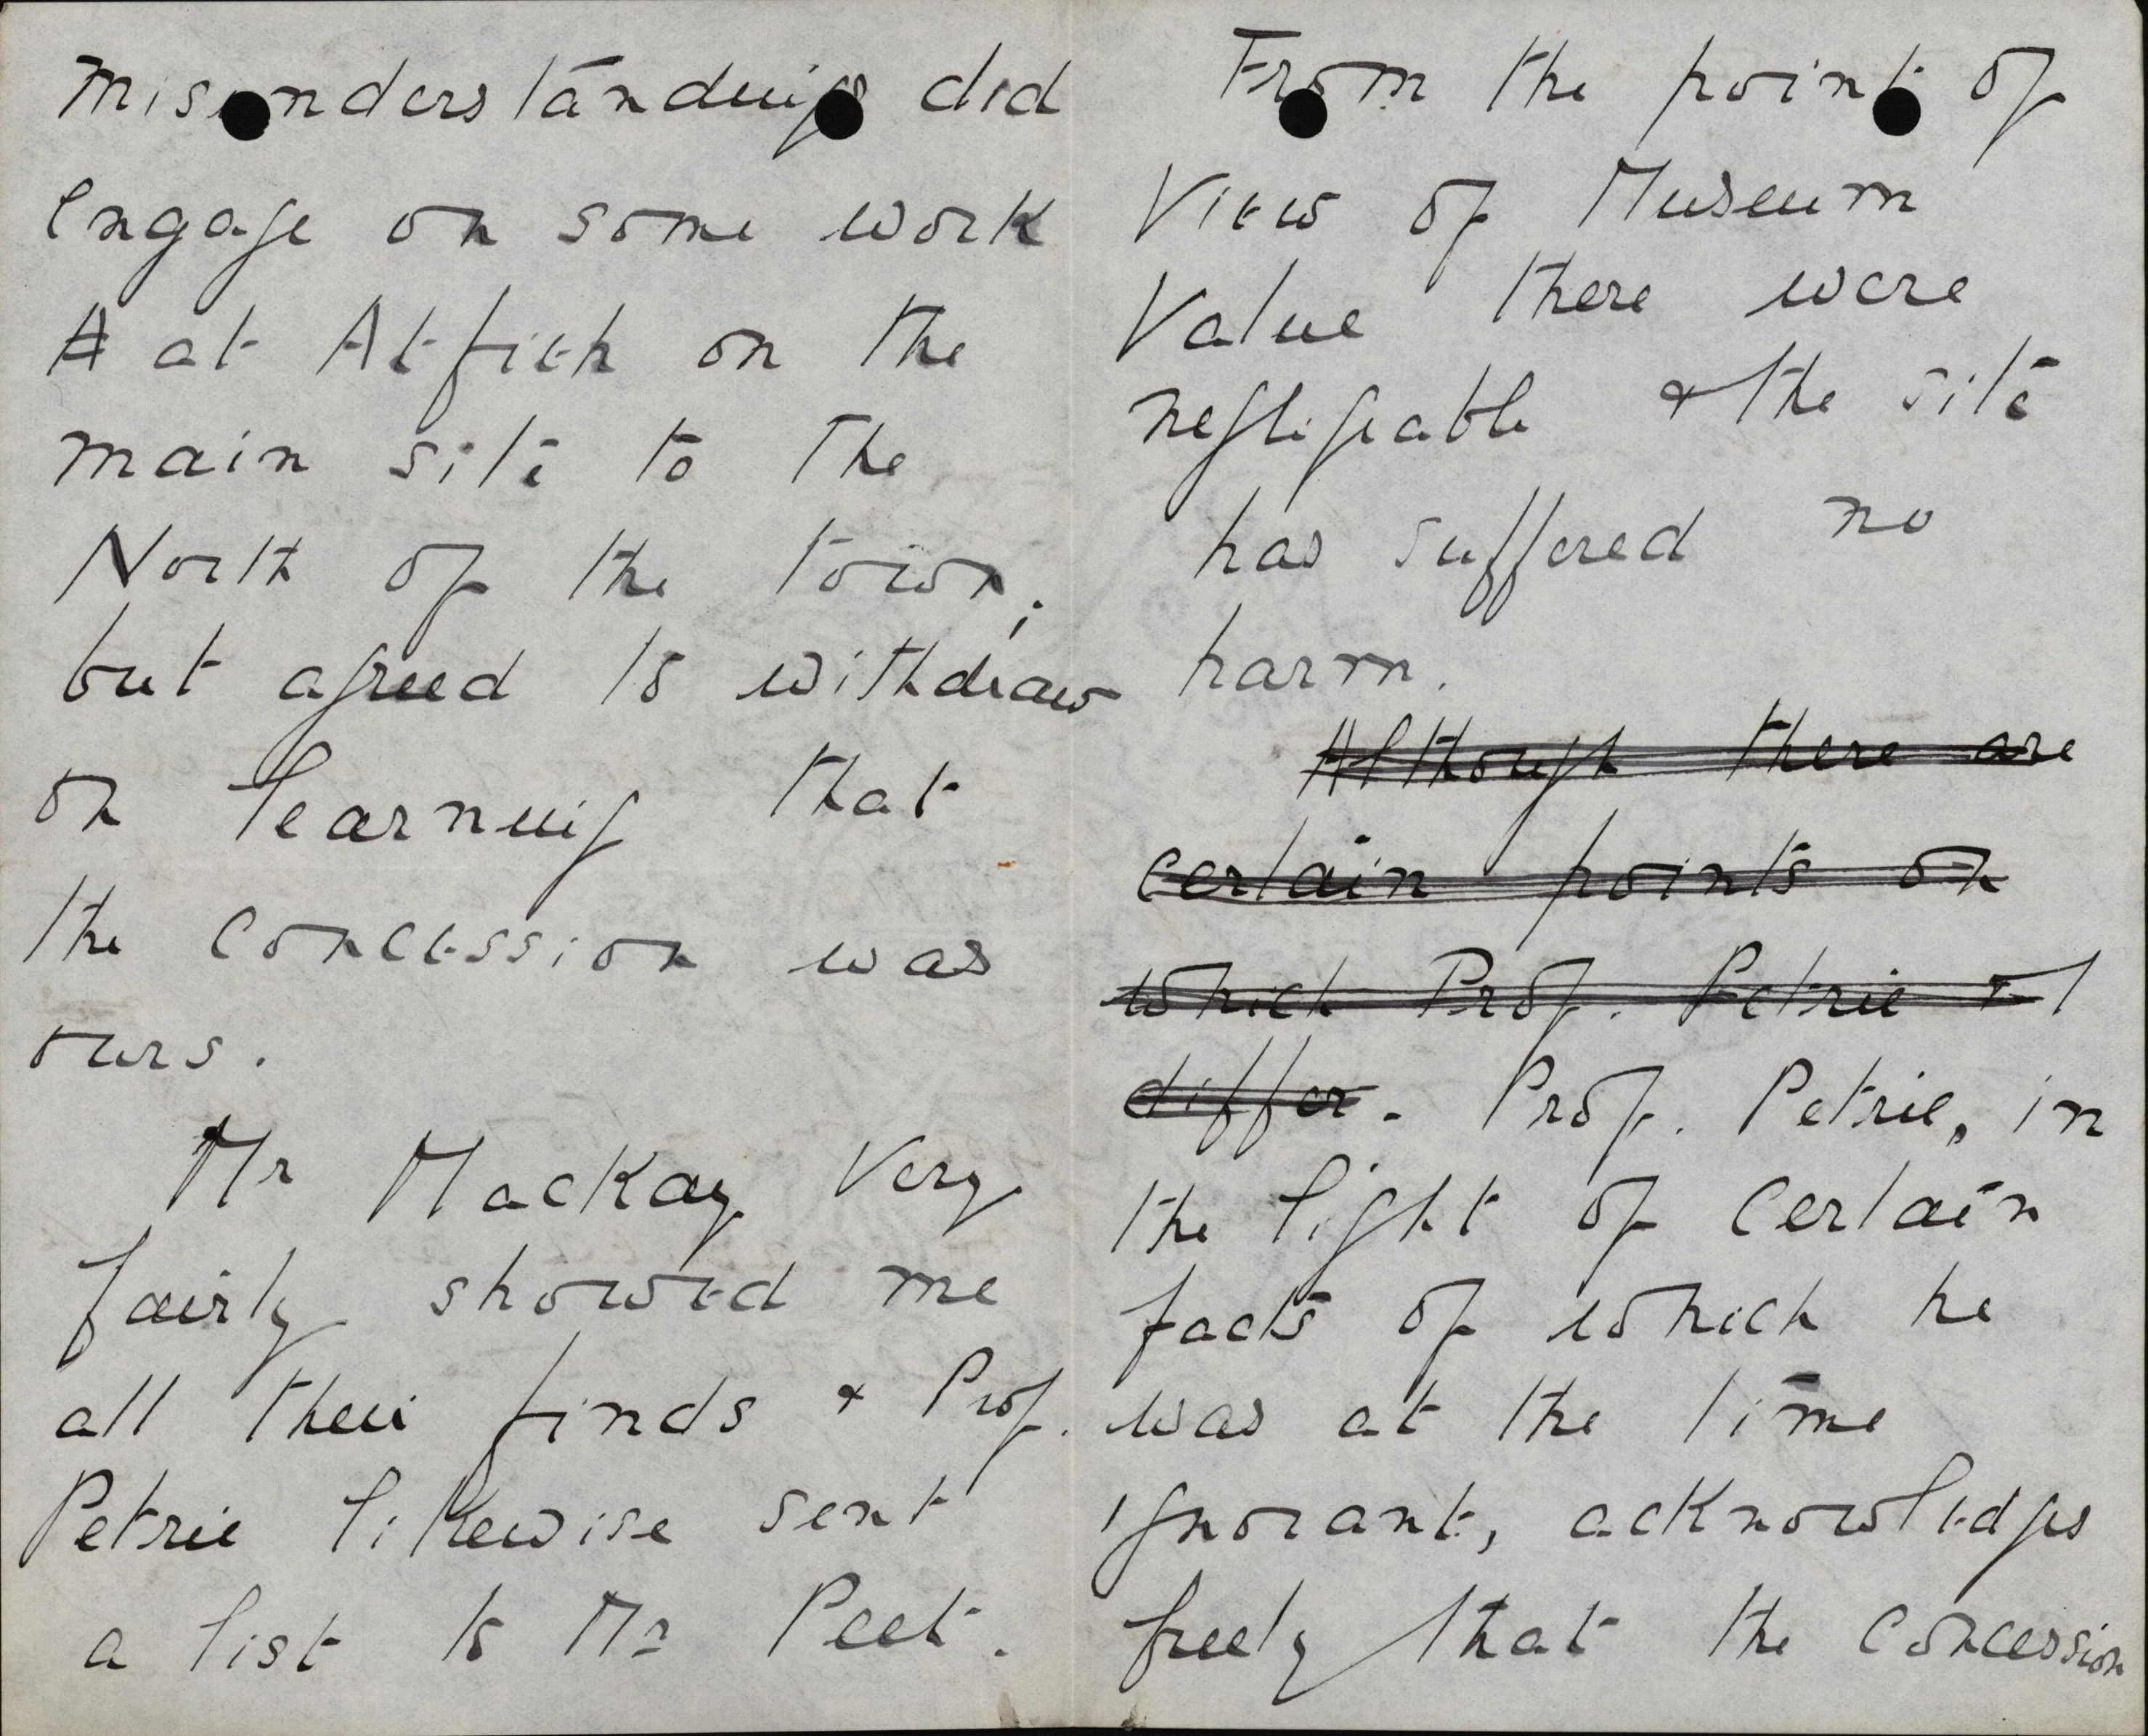 misunderstandings did
engage on some work
A at Atfieh on the
main site to the
North of the town;
but agreed to withdraw
on learning that
the concession was
ours.
Mr Mackay very
fairly showed me
all their finds & Prof.
Petrie likewise sent
a list to Mr Peet.
From the point of
View of Museum
Value there were
negligeable & the site
has suffered no
harm.
Although there are
certain points on
which Prof. Petrie & I
differ. Prof. Petrie, in
the light of certain
facts of which he
was at the time
ignorant, acknowledges
freely that the concession